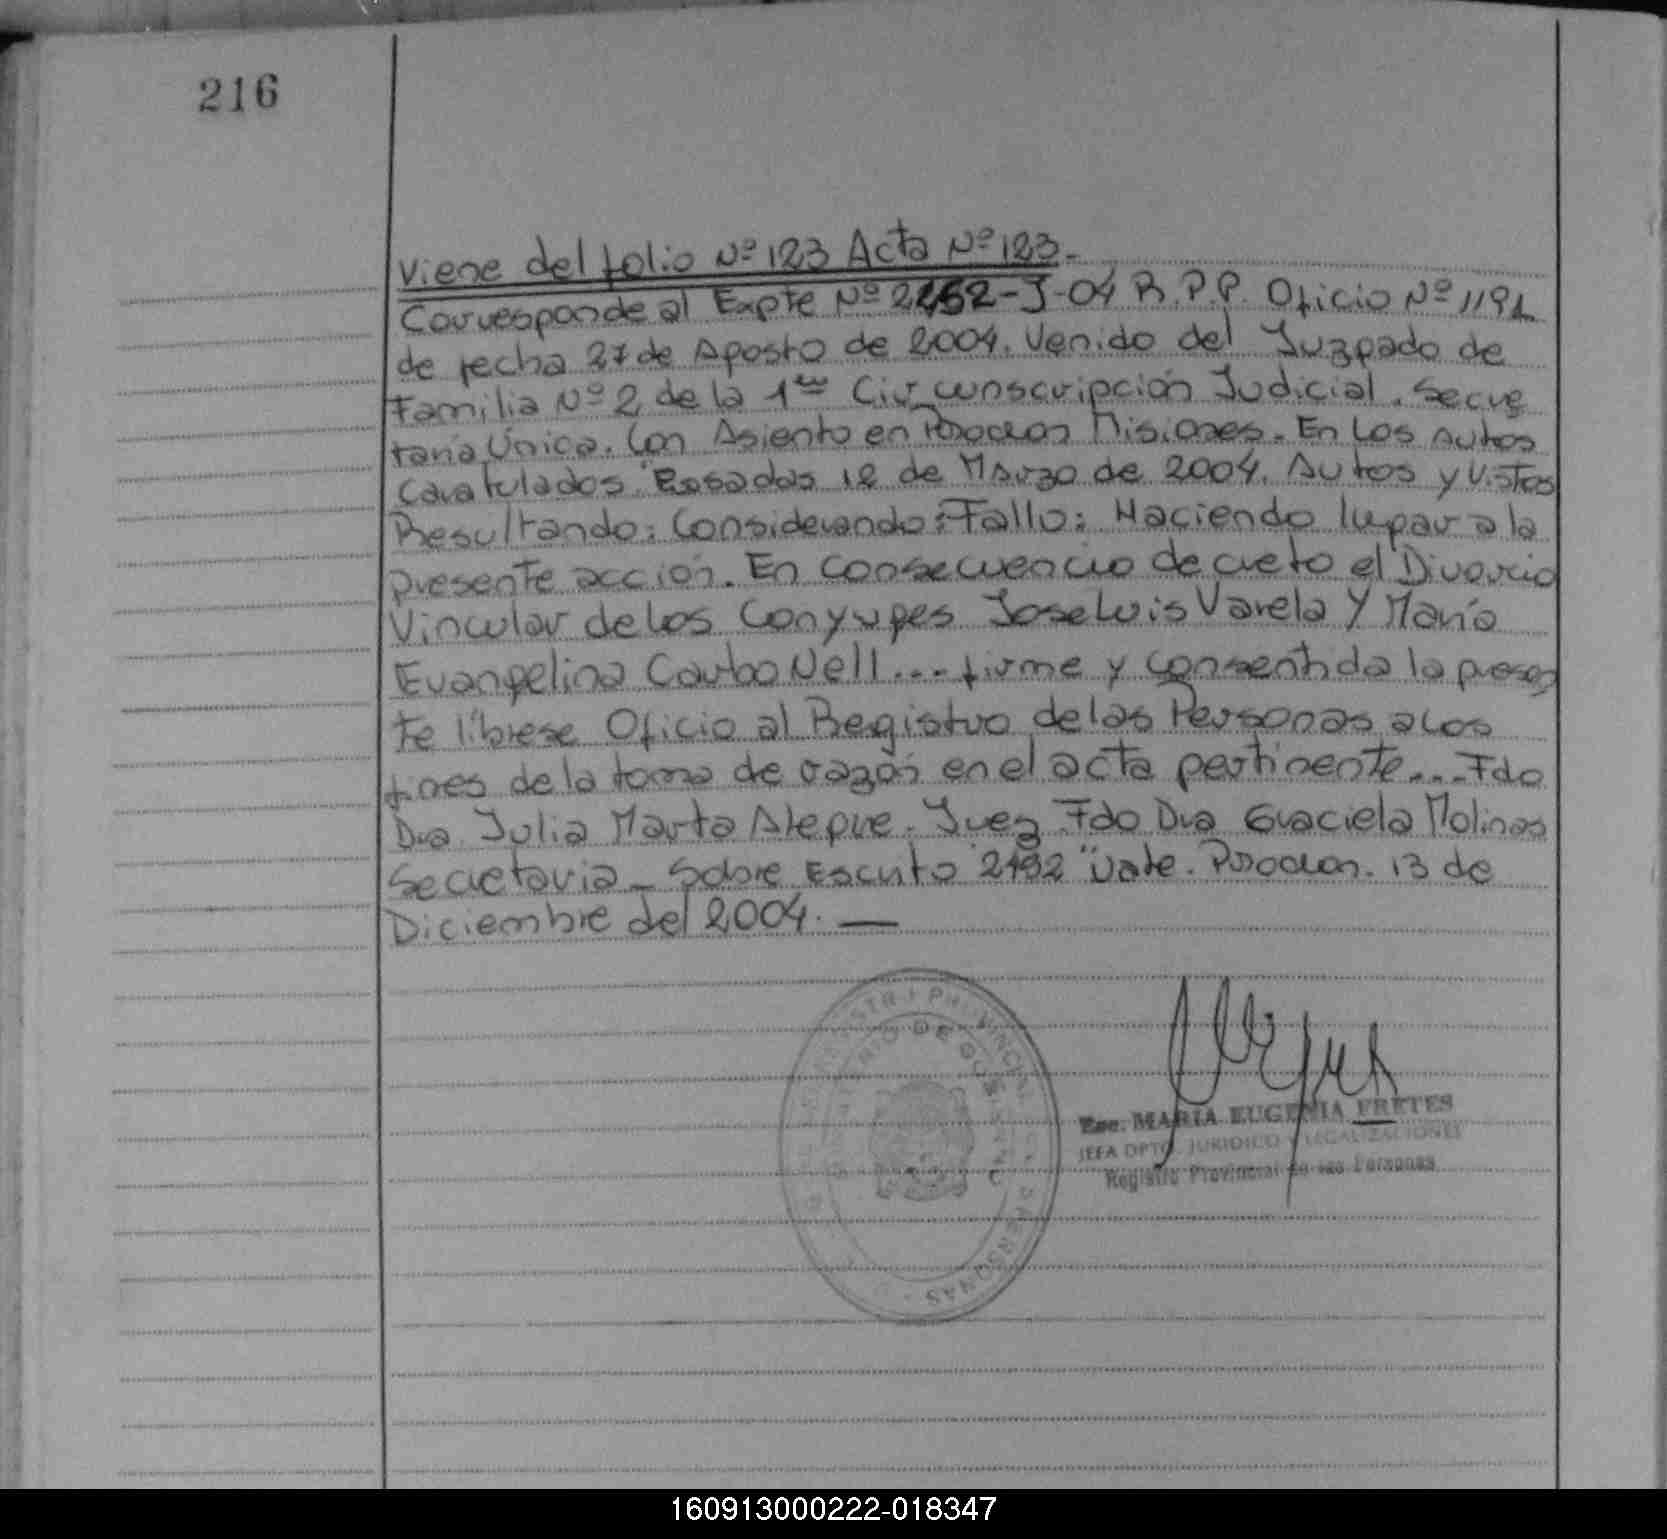 216
Viene del folio Nº 123 Acta Nº 123.-
Corresponde al Expte Nº 2152-J-04 R.P.P. Oficio Nº 1191
de fecha 27 de Agosto de 2004. Venido del Juzgado de
Familia Nº 2 de la 1era Circunscripción Judicial. Secre
taria Única. Con Asiento en Posadas Misiones. En los Autos
Caratulados "Posadas 12 de Marzo de 2004. Autos y Vistos
Resultando: Considerando: Fallo: Haciendo lugar a la
presente acción. En consecuencia decreto el Divorcio
Vincular de los Conyuges Jose Luis Varela Y María
Evangelina CarboNell... firme y consentida la presen
te líbrese Oficio al Registro de las Personas a los
fines de la toma de razón en el acta pertinente... Fdo
Dra. Julia Marta Alegre. Juez. Fdo Dra Graciela Molinas
Secretaria - Sobre Escrito "2152" Vale. Posadas. 13 de
Diciembre del 2004. —
PROVINCIAL
PERSONAS
Esc. MARIA EUGENIA FRETES
JEFA DPTO. JURIDICO Y LEGALIZACIONES
Registro Provincial de las Personas
160913000222-018347